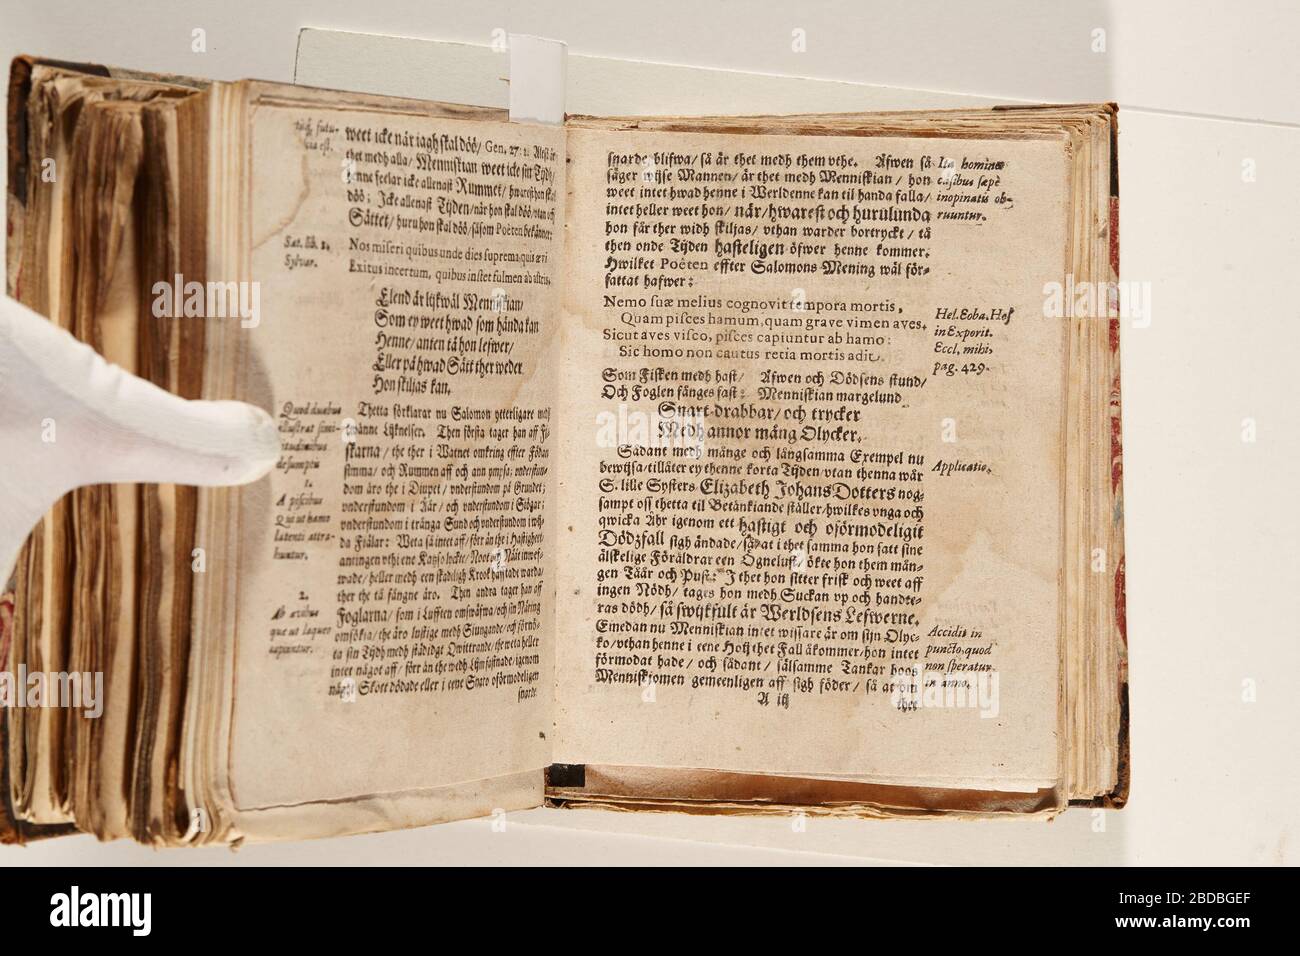 weet icke när iagh skal döö/ Gen. 27: 2. Alest är
thet medh alla/ Menniskian weet icke sin Tijdh/
henne feelar icke allenast Rummet/ hwarest hon skal
döö; Icke allenast Tijden/ när hon skal döö/ vtan och
Sättet/ huru hon skal döö/ såsom Poëten bekänner:
Stat. lib. 2.
Sylvar.
Nos miseri quibus unde dies suprema quis ævi
Exitus incertum, quibus instet fulmen ab astris,
Elend är lijkwäl Menniskian/
Som ey weet hwad som hända kan
Henne/ anten tå hon lefwer/
Eller på hwad Sätt ther weder
Hon skiljas kan.
Quod duabus
illustrat simi-
litudinibus
desumptis
Thetta förklarar nu Salomon ytterligare medh
twänne Lijknelser. Then första tager han aff Fi-
skarna/ the ther i Watnet omkring effter Födan
simma/ och Rummen aff och ann ympsa; vnderstun-
dom äro the i Diupet/ vnderstundom på Grundet;
vnderstundom i Åär/ och vnderstundom i Siögar;
vnderstundom i trånga Sund och vnderstundom i wij-
da Fiälar: Weta så intet aff/ förr än the i Hastigheet
antingen vthi ene Kapso lockte/ Noot och Nätt inwef-
wade/ heller medh een skadeligh Krook häfftade warda/
ther the tå fängne äro. Then andra tager han aff
Foglarna/ som i Lufften omswäfwa/ och sin Näring
omsökia/ the äro lustige medh Siungande/ och förnö-
ta sin Tijdh medh städigt Qwittrande/ the weta heller
intet något aff/ förr än the wedh Lijm fastnade/ igenom
något Skott dödade eller i eene Snaro oförmodeligen
snarde
1.
A piscibus
Qui ut hamo
latenti attra-
huntur.
2.
Ab avibus
quæ ut laqueo
capiuntur.
snarde blifwa/ så är thet medh them vthe. Äfwen så
säger wijse Mannen/ är thet medh Menniskian/ hon
weet intet hwad henne i Werldenne kan til handa falla/
intet heller weet hon/ när/ hwarest och hurulunda
hon får ther widh skiljas/ vthan warder bortryckt/ tå
then onde Tijden hasteligen öfwer henne kommer.
Hwilket Poëten effter Salomons Mening wäl för-
fattat hafwer:
Ita homines
casibus sæpè
inopinatis ob-
ruuntur.
Nemo suæ melius cognovit tempora mortis,
Quam pisces hamum, quam grave vimen aves.
Sicut aves visco, pisces capiuntur ab hamo:
Sic homo non cautus retia mortis adit.
Hel. Eoba. Hess
in Exporit.
Eccl, mihi,
pag. 429.
Som Fisken medh hast/ Äfwen och Dödsens stund/
Och Foglen fänges fast: Menniskian margelund
Snart-drabbar/ och trycker
Medh annor mång Olycker.
Sådant medh månge och långsamma Exempel nu
bewijsa/ tillåter ey thenne korta Tijden/ vtan thenna wår
S. lille Systers Elizabeth Johans Dotters nog-
sampt oss thetta til Betänkiande ställer/ hwilkes vnga och
qwicka Åhr igenom ett hastigt och oförmodeligit
Dödzfall sigh ändade/ så at i thet samma hon satt sine
älskelige Föräldrar een Ognelust/ ökte hon them mån-
gen Täär och Pust: I thet hon sitter frisk och weet aff
ingen Nödh/ tages hon medh Suckan vp och handte-
ras dödh/ så swijkfult är Werldsens Lefwerne.
Emedan nu Menniskian intet wissare är om sijn Olyc-
ko/ vthan henne i eene Hast thet Fall åkommer/ hon intet
förmodat hade/ och sådant/ sälsamme Tankar hoos
Menniskjomen gemeenligen aff sigh föder/ så at om
Applicatio.
Accidit in
puncto, quod
non speratur
in anno.
A iij
thee